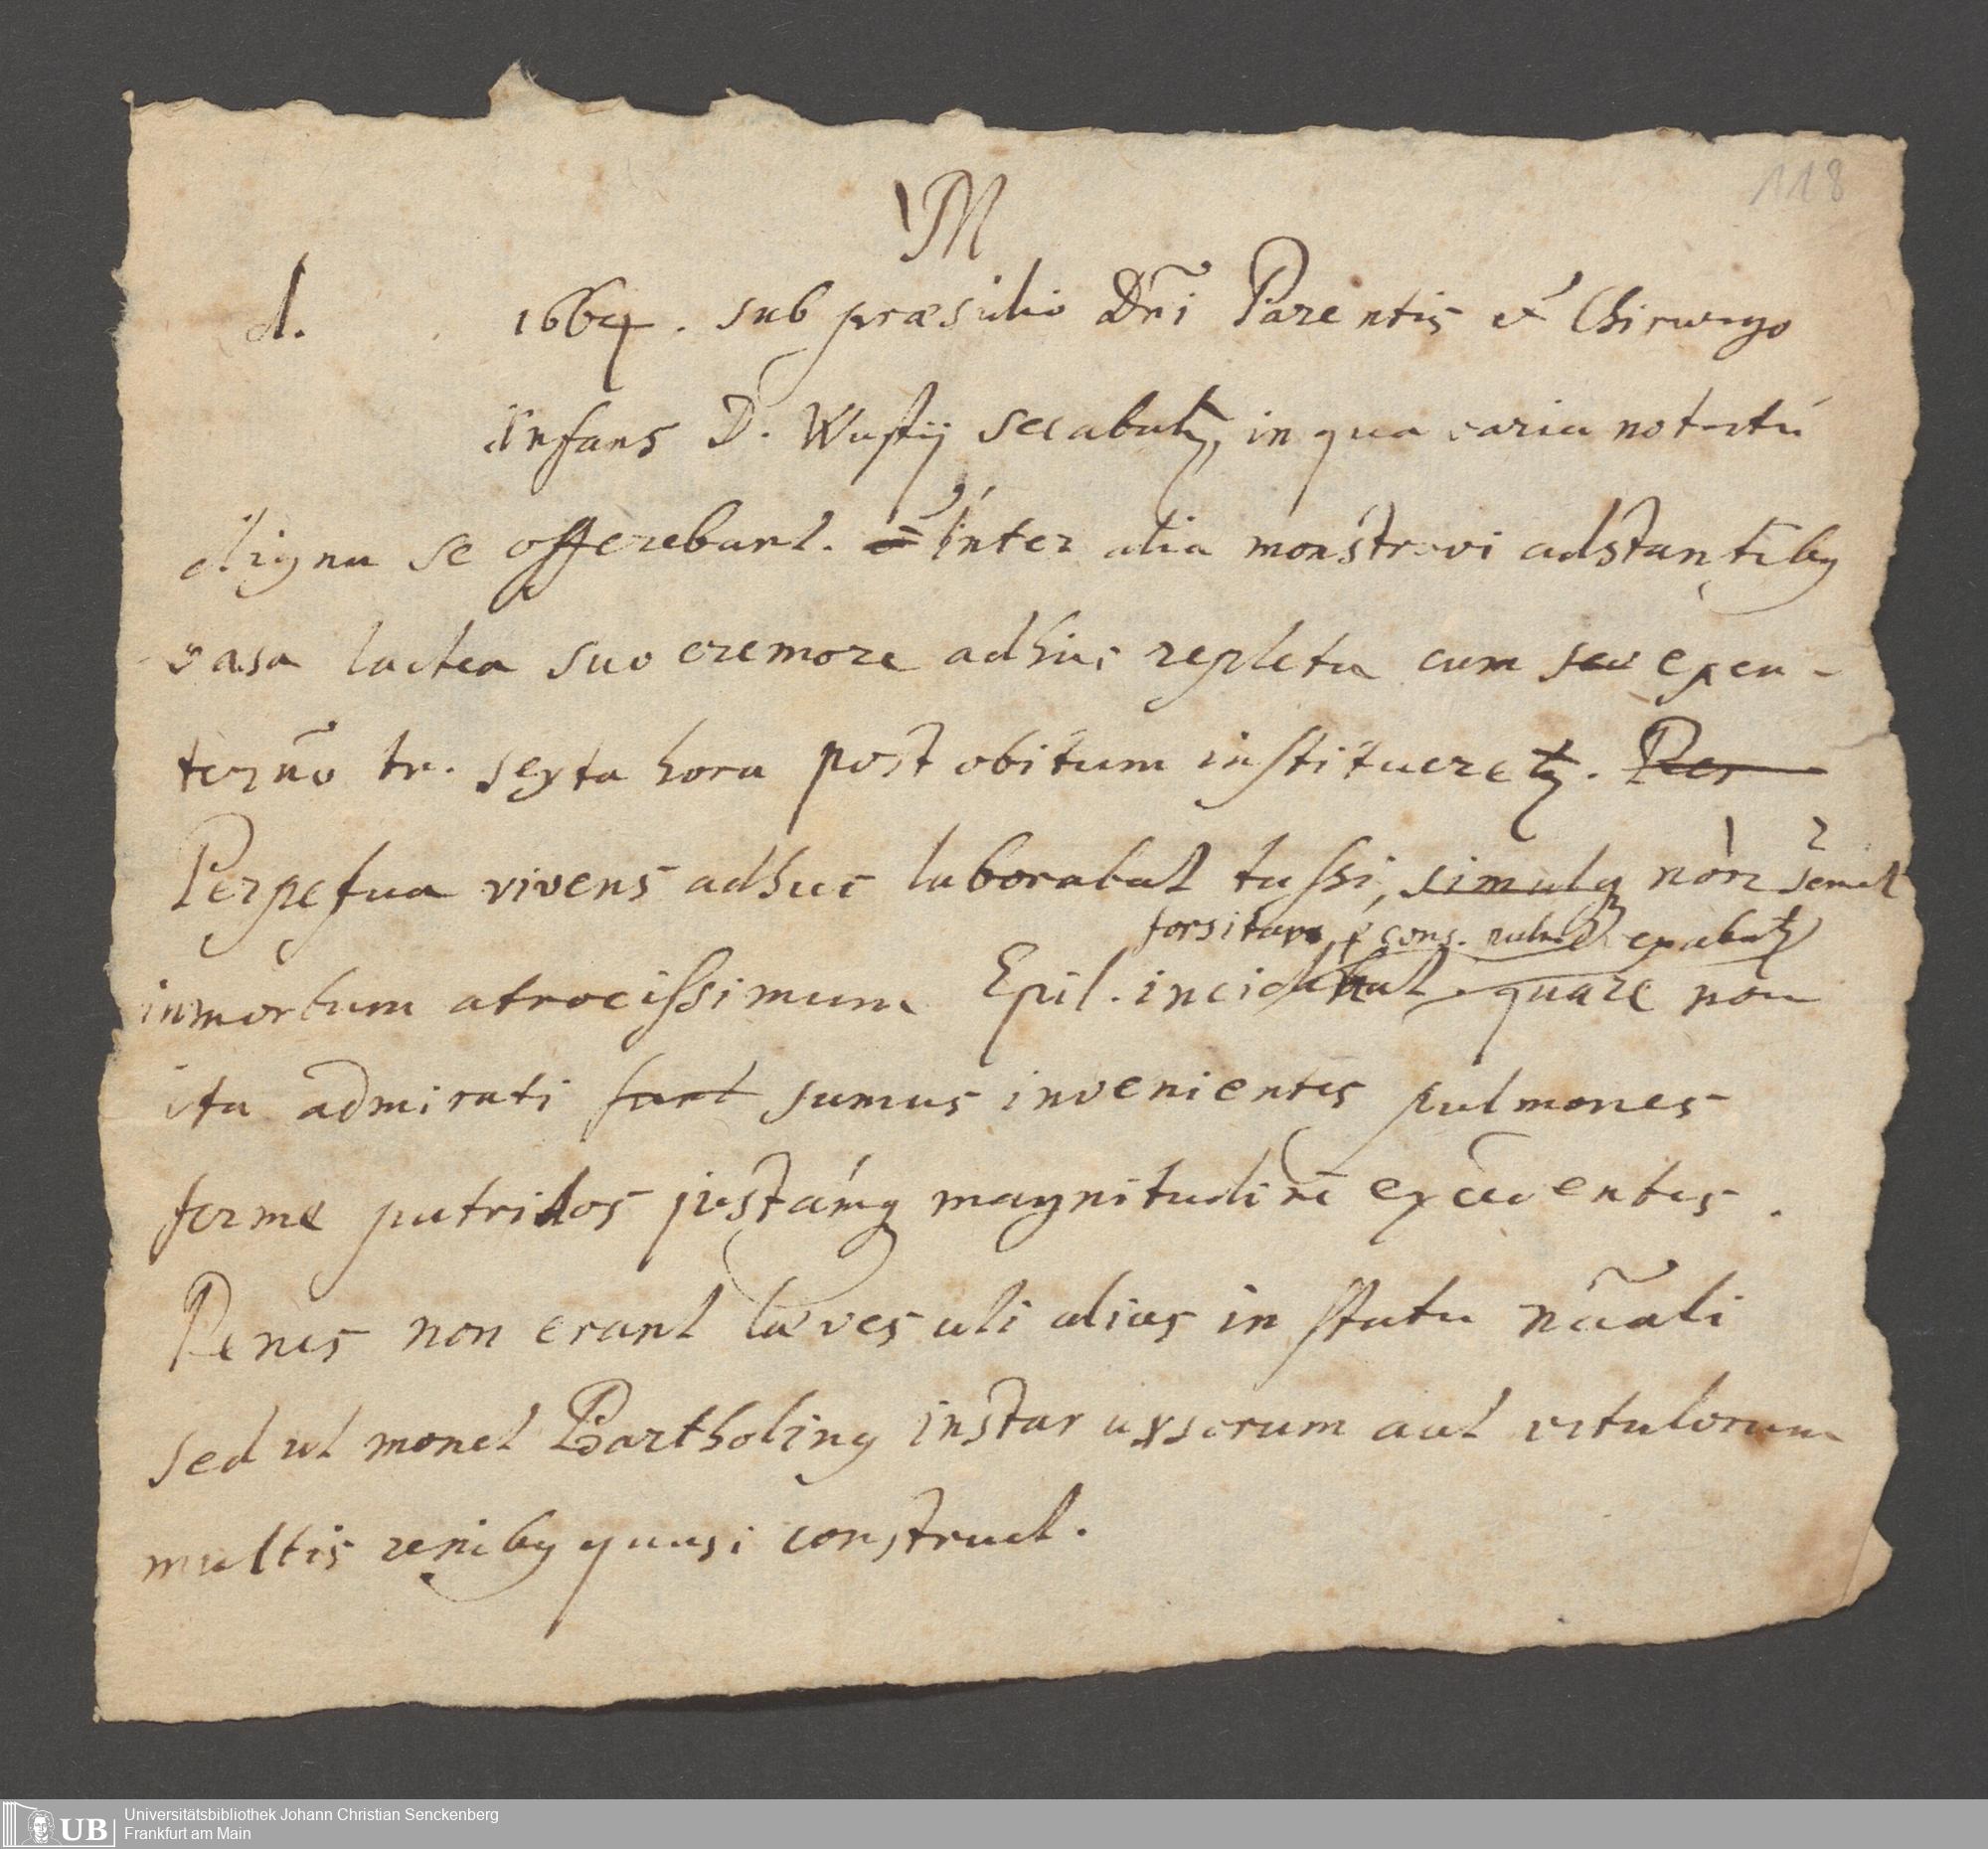 118
M
d. 1664. sub præsidio Dñi Parentis et Chirurgo
Infans D. Wustij secabatr, in qua varia notatu
digna se offerebant. Inter alia monstravi adstantibq
vasa lactea suo cremore adhuc repleta cum seu exen-
sexta hora post obitum institueretr. Per
Perpetua vivens adhuc laborabat tussi, simulq non semel
forsitan cons.
in morbum atrocissimum Epil. incidebat quare non
ita admirati sunt sumus invenientes pulmones
ferme putridos justamq magnitudinē excedentes.
Renes non erant læves uti alias in statu nãali
sed ut monet Bartholinq instar ursorum aut vitulorum
multis renibq quasi construct.
UB Universitätsbibliothek Johann Christian Senckenberg
Frankfurt am Main